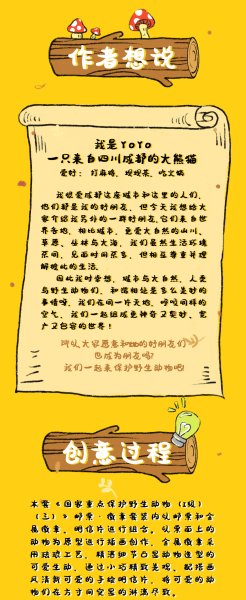 作者想说
我是YOYO
一只来自四川成都的大熊猫
爱好：打麻将、观观茶、吃火锅
我很爱成都这座城市和这里的人们，
他们都是我的好朋友，但今天我想给大
家介绍我另外的一群好朋友，它们来自世
界各地，相比城市，更爱大自然的山川、
草原、丛林与大海，我们虽然生活环境
不同，见面时间不多，但相互尊重并理
解彼此的生活。
因此我时常想，城市与大自然，人类
与野生动物们，和谐相处是多么美妙的
事情呀，我们在同一片天地，呼吸同样的
空气，我们一起组成了神奇又美妙，宽
广又包容的世界！
所以大家愿意和他的好朋友们
也成为朋友吗？
我们一起来保护野生动物吧！
创意过程
本套《国家重点保护野生动物（I级）
（三）》邮票·徽章套装内以邮票和金
属徽章、明信片进行组合。从票面上的
动物为原型进行插画创作，金属徽章采
用珐琅工艺，精湛细节凸显动物造型的
可爱生动，通过小巧精致美观、配搭画
风清新可爱的手绘明信片，将可爱的动
物们在方寸间变显的淋漓尽致。